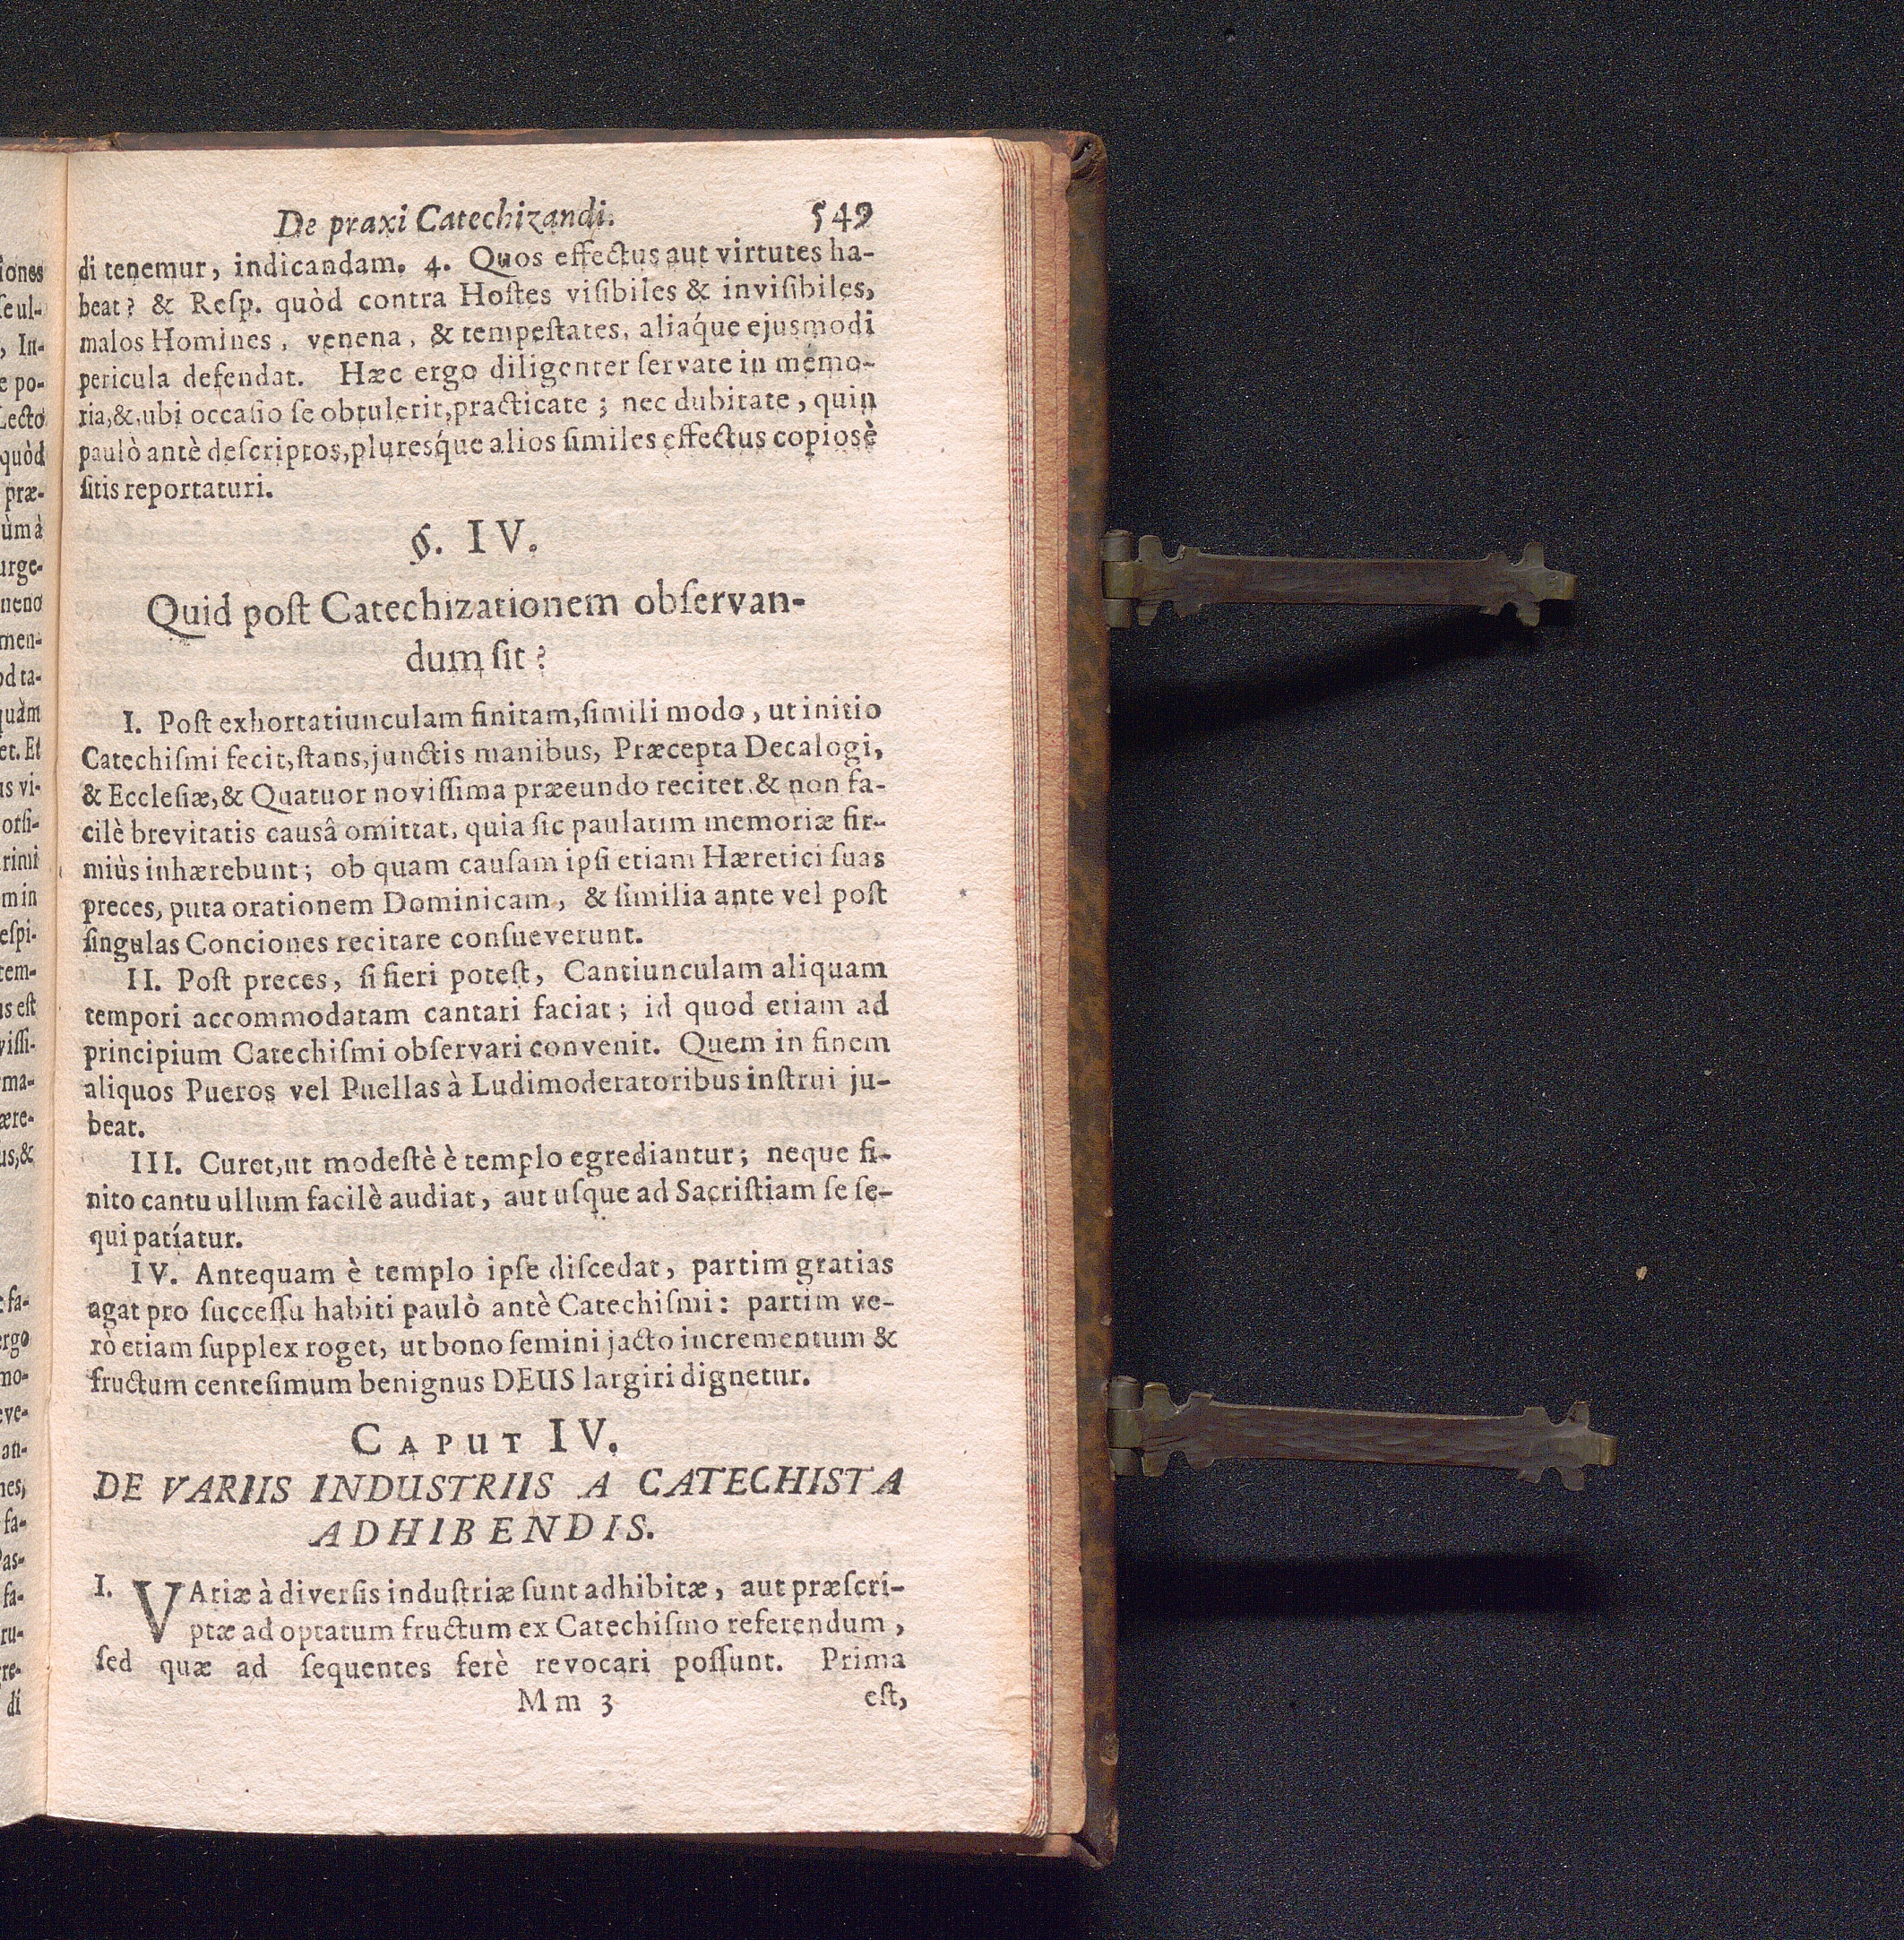 De praxi Catechizandi. 549
di tenemur, indicandam. 4. Quos effectus aut virtutes ha-
beat? & Reſp. quòd contra Hoſtes viſibiles & inviſibiles,
malos Homines, venena, & tempeſtates, aliaq́ue ejusmodi
pericula defendat. Hæc ergo diligenter ſervate in memo-
ria,&,ubi occaſio ſe obtulerit,practicate; nec dubitate, quin
paulò antè deſcriptos,pluresq́ue alios ſimiles effectus copiosè
ſitis reportaturi.
§. IV.
Quid poſt Catechizationem obſervan-
dum ſit?
I. Poſt exhortatiunculam finitam,ſimili modo, ut initio
Catechiſmi fecit,ſtans,junctis manibus, Præcepta Decalogi,
& Eccleſiæ,& Quatuor noviſſima præeundo recitet,& non fa-
cilè brevitatis causâ omittat, quia ſic paulatim memoriæ fir-
miùs inhærebunt; ob quam cauſam ipſi etiam Hæretici ſuas
preces, puta orationem Dominicam, & ſimilia ante vel poſt
ſingulas Conciones recitare conſueverunt.
II. Poſt preces, ſi fieri poteſt, Cantiunculam aliquam
tempori accommodatam cantari faciat; id quod etiam ad
principium Catechiſmi obſervari convenit. Quem in finem
aliquos Pueros vel Puellas à Ludimoderatoribus inſtrui ju-
beat.
III. Curet,ut modeſtè è templo egrediantur; neque fi-
nito cantu ullum facilè audiat, aut uſque ad Sacriſtiam ſe ſe-
qui patíatur.
IV. Antequam è templo ipſe diſcedat, partim gratias
agat pro ſucceſſu habiti paulò antè Catechiſmi: partim ve-
rò etiam ſupplex roget, ut bono ſemini jacto incrementum &
fructum centeſimum benignus DEUS largiri dignetur.
CAPUT IV.
DE VARIIS INDUSTRIIS A CATECHISTA
ADHIBENDIS.
I. VAriæ à diverſis induſtriæ ſunt adhibitæ, aut præſcri-
ptæ ad optatum fructum ex Catechiſmo referendum,
ſed quæ ad ſequentes ferè revocari poſſunt. Prima
Mm 3 eſt,